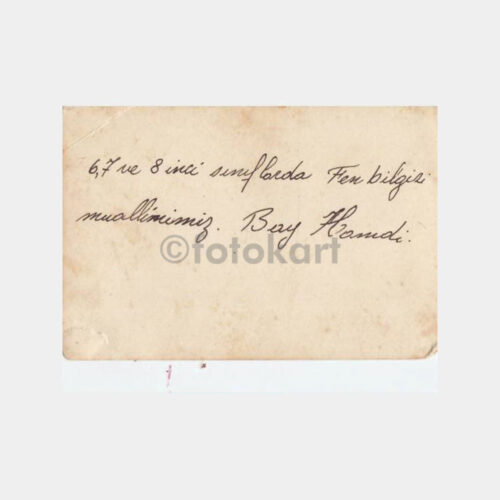 6,7 ve 8 inci sınıflarda Fen bilgisi
muallimimiz. Bay Hamdi.
©fotokart